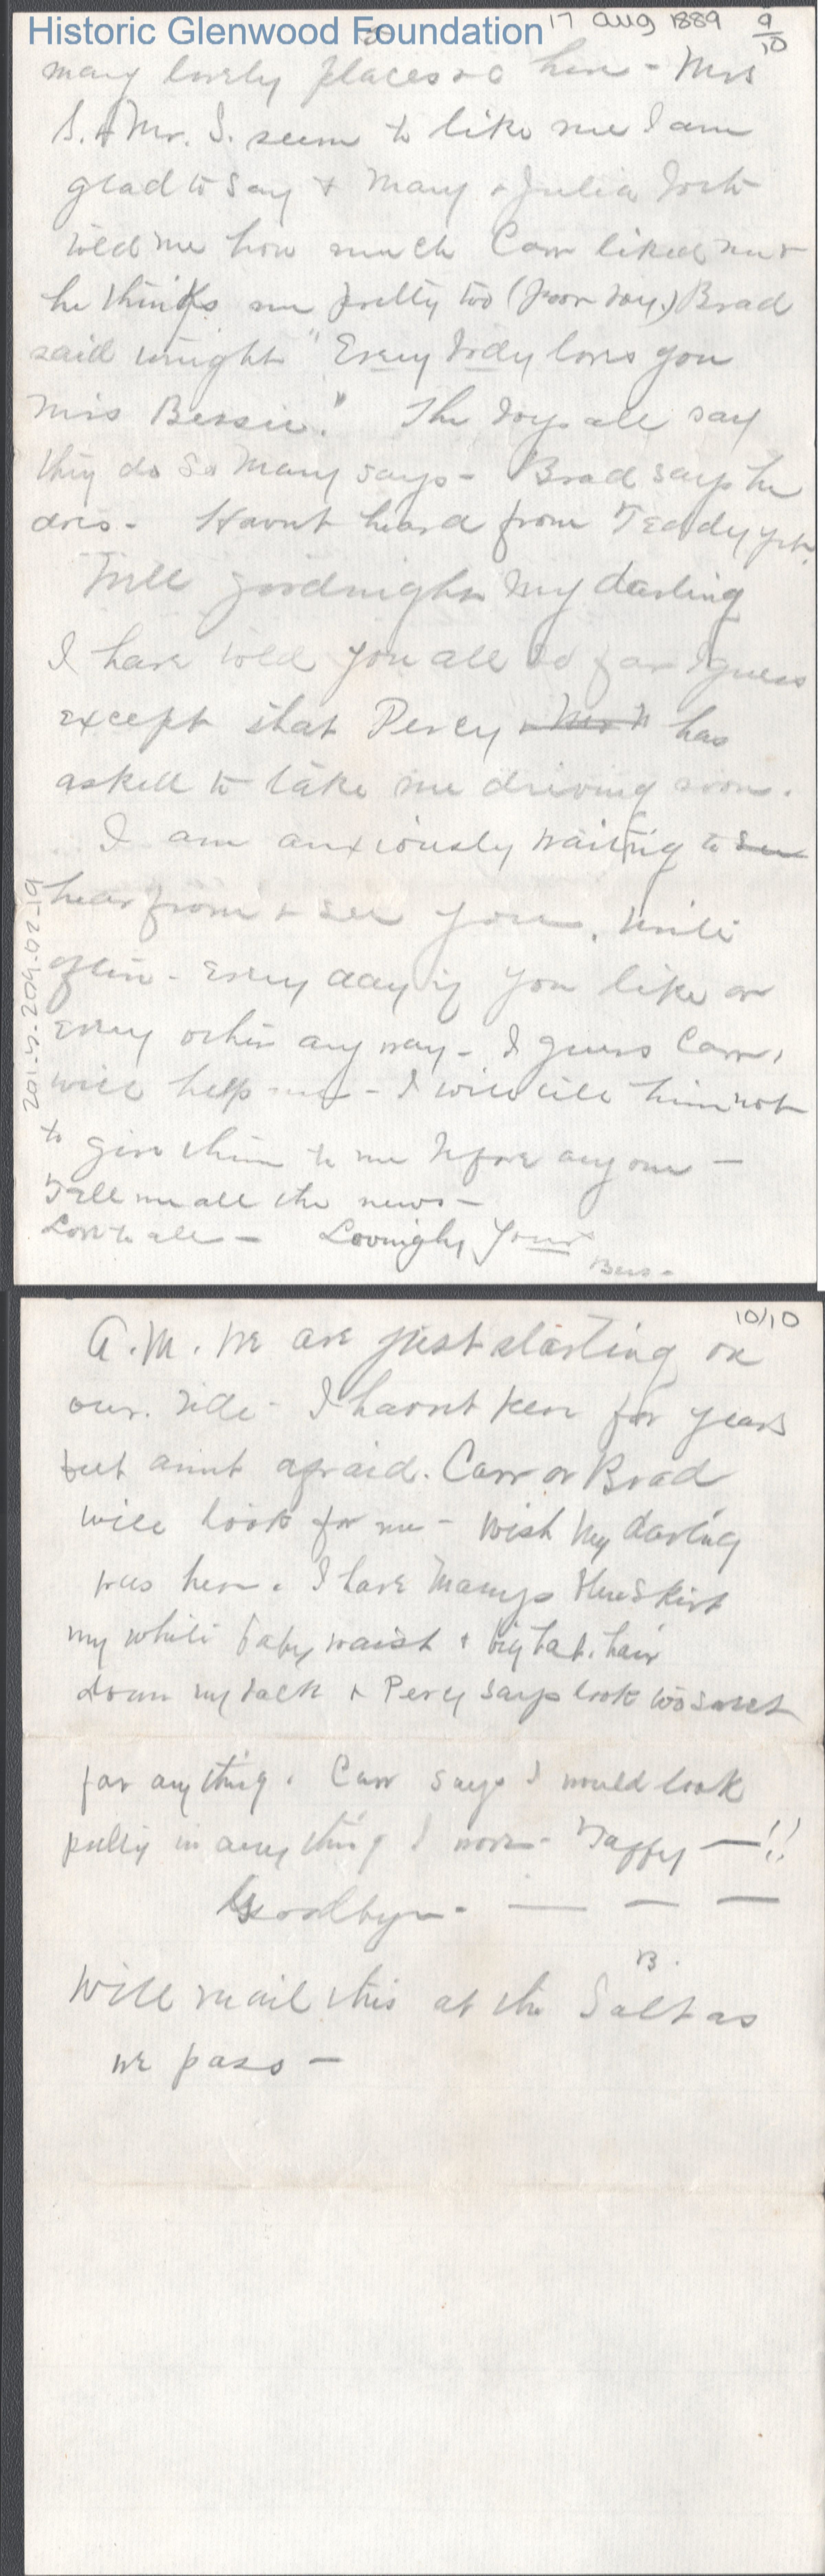 Historic Glenwood Foundation 17 Aug 1889 9/10
many lovely places &c here - Mrs
S. & Mr. S. seem to like me I am
glad to say & Mary & Julia both
told me how much Carr liked me &
he thinks me pretty too (poor boy.) Brad
said tonight "Every body loves you
Miss Bessie." The boys all say
they do so Mary says - Brad says he
does - Havnt heard from Teddy yet.
Well goodnight my darling
I have told you all so far I guess
except that Percy has
asked to take me driving soon.
I am anxiously waiting to see
hear from & see you. Write
often - Every day if you like or
every other any way - I guess Carr
will help me - I will tell him not
to give them to me before any one -
Tell me all the news -
Love to all - Lovingly Yours
Bess -
2015-204-20-19
10/10
A.M. We are just starting on
our ride - I havnt been for years
but aint afraid. Carr or Brad
will look for me - Wish my darling
was here. I have Marys blue skirt
my white baby waist & big hat, hair
down my back & Percy says look too sweet
for anything. Carr says I would look
pretty in any thing I wore - Taffy —!!
Goodbye - — — —
B.
Will mail this at the Salt as
we pass -